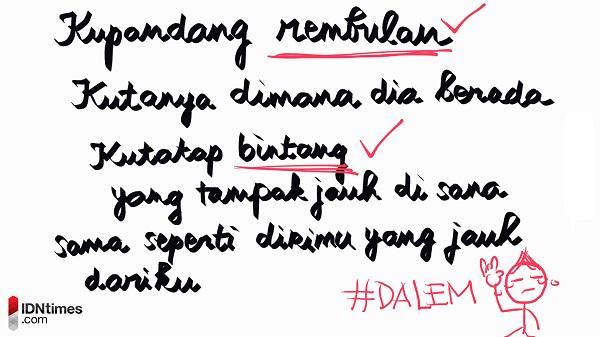 Kupandang rembulan
Kutanya dimana dia berada
Kutatap bintang
yang tampak jauh di sana
sama seperti dirimu yang jauh
dariku
#DALEM
IDNtimes
.com